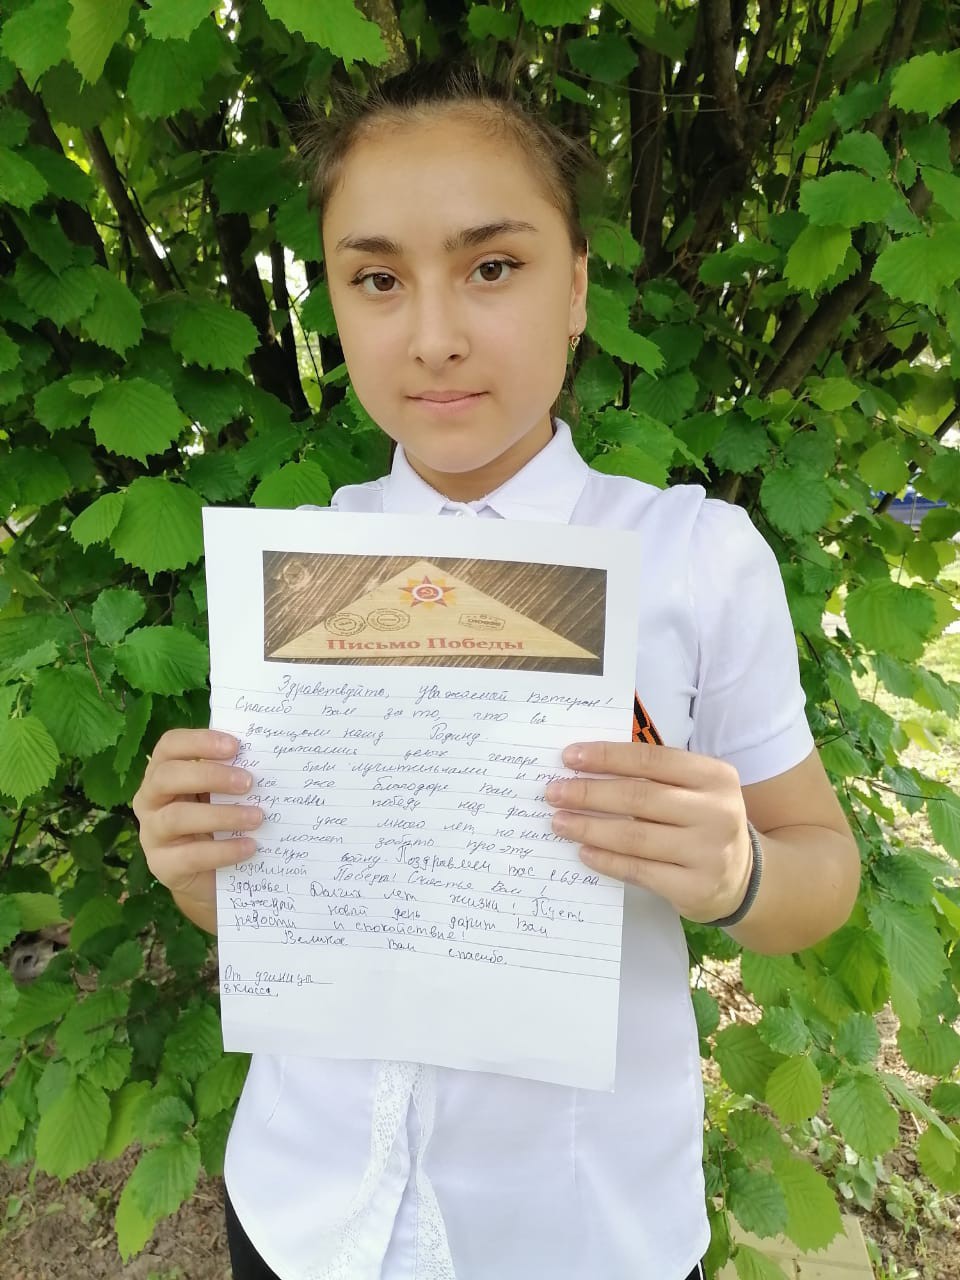 Письмо Победы
Здравствуйте, уважаемый Ветеран!
Спасибо Вам за то, что вы
защищали нашу Родину
сражались долгие четыре
Вам были мучительными и
всё же благодаря Вам,
одержали победу над
уже много лет но никто
не может забыть про эту
войну. Поздравляем вас с 69-ой
годовщиной Победы! Счастья Вам!
Здоровье! Долгих лет жизни! Пусть
каждый новый день дарит Вам
радости и спокойствие!
Великое Вам спасибо.
От ученицы
8 класса.